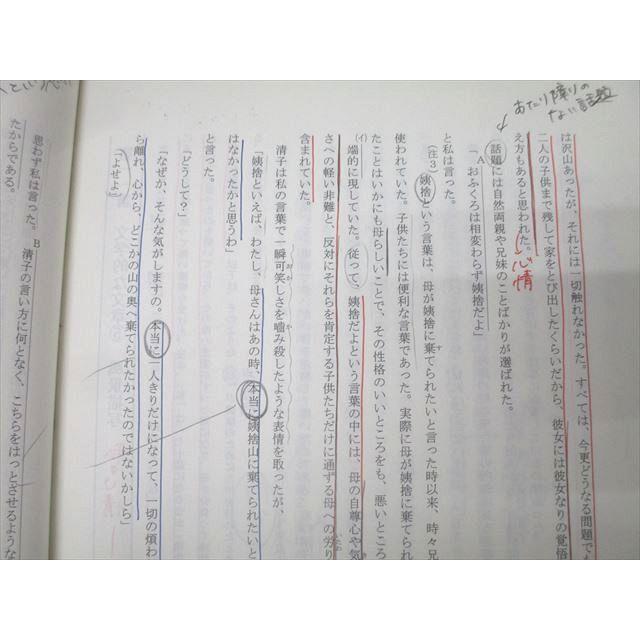 あたり障りの
ない話題
は沢山あったが、それには一切触れなかった。すべては、今更どうなる問題でも
二人の子供まで残して家をとび出したくらいだから、彼女には彼女なりの覚悟
え方もあると思われた。
心情
話題には自然両親や兄妹のことばかりが選ばれた。
A「おふくろは相変わらず姨捨だよ」
と私は言った。
(注3)姨捨という言葉は、母が姨捨に棄てられたいと言った時以来、時々兄
使われていた。子供たちには便利な言葉であった。実際に母が姨捨に棄てられ
たことはいかにも母らしいことで、その性格のいいところをも、悪いところ
(イ)端的に現していた。従って、姨捨だよという言葉の中には、母の自尊心や気
さへの軽い非難と、反対にそれらを肯定する子供たちだけに通ずる母への労り
含まれていた。
清子は私の言葉で一瞬可笑しさを嚙み殺したような表情を取ったが、
「姨捨といえば、わたし、母さんはあの時、本当に姨捨山に棄てられたいと
はなかったかと思うわ」
と言った。
「どうして?」
「なぜか、そんな気がしますの。本当に一人きりだけになって、一切の煩わ
ら離れ、心から、どこかの山の奥へ棄てられたかったのではないかしら」
「よせよ」
思わず私は言った。B清子の言い方に何となく、こちらをはっとさせるような
たからである。